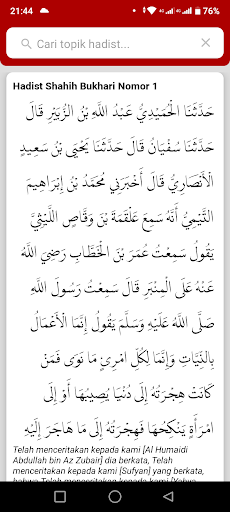 21:44
76%
Cari topik hadist...
Hadist Shahih Bukhari Nomor 1
حَدَّثَنَا الْحُمَيْدِيُّ عَبْدُ اللَّهِ بْنُ الزُّبَيْرِ قَالَ
حَدَّثَنَا سُفْيَانُ قَالَ حَدَّثَنَا يَحْيَى بْنُ سَعِيدٍ
الْأَنْصَارِيُّ قَالَ أَخْبَرَنِي مُحَمَّدُ بْنُ إِبْرَاهِيمَ
التَّيْمِيُّ أَنَّهُ سَمِعَ عَلْقَمَةَ بْنَ وَقَّاصٍ اللَّيْثِيَّ
يَقُولُ سَمِعْتُ عُمَرَ بْنَ الْخَطَّابِ رَضِيَ اللَّهُ
عَنْهُ عَلَى الْمِنْبَرِ قَالَ سَمِعْتُ رَسُولَ اللَّهِ
صَلَّى اللَّهُ عَلَيْهِ وَسَلَّمَ يَقُولُ إِنَّمَا الْأَعْمَالُ
بِالنِّيَّاتِ وَإِنَّمَا لِكُلِّ امْرِئٍ مَا نَوَى فَمَنْ
كَانَتْ هِجْرَتُهُ إِلَى دُنْيَا يُصِيبُهَا أَوْ إِلَى
امْرَأَةٍ يَنْكِحُهَا فَهِجْرَتُهُ إِلَى مَا هَاجَرَ إِلَيْهِ
Telah menceritakan kepada kami [Al Humaidi
Abdullah bin Az Zubair] dia berkata, Telah
menceritakan kepada kami [Sufyan] yang berkata,